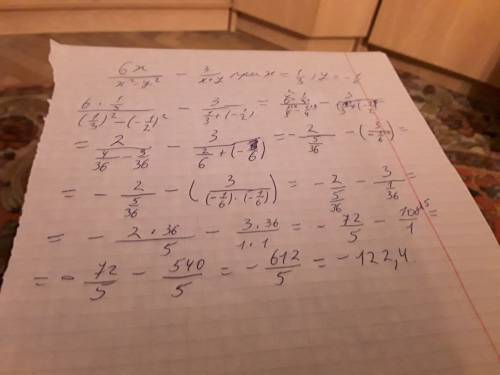 6x/(x²-y²) - 3/(x+y) при x = 1/3, y = -1/2
(6 · 1/3)/((1/3)² - (-1/2)²) - 3/(1/3 + (-1/2)) =
= 2/(4/36 - 9/36) - 3/(2/6 + (-3/6)) = - 2/(5/36) - (3/(-1/6)) =
= - 2/(5/36) - (3/((-1/6) · (-1/6))) = - 2/(5/36) - 3/(1/36) =
= - (2 · 36)/5 - (3 · 36)/(1 · 1) = - 72/5 - 108/1 =
= - 72/5 - 540/5 = - 612/5 = -122,4